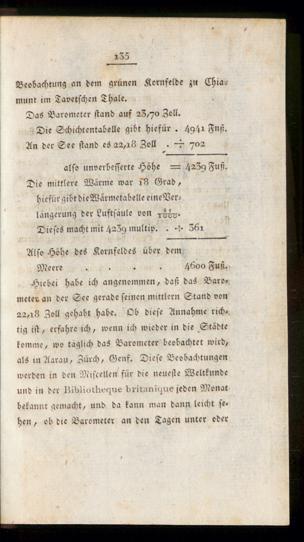 135
Beobachtung an dem grünen Kornfelde zu Chia-
munt im Tavetschen Thale.
Das Barometer stand auf 23,70 Zoll.
Die Schichtentabelle gibt hiefür . 4941 Fuß.
An der See stand es 22,18 Zoll . ÷ 702
also unverbesserte Höhe = 4239 Fuß.
Die mittlere Wärme war 18 Grad,
hiefür gibt die Wärmetabelle eine Ver-
längerung der Luftsäule von
Dieses macht mit 4239 multip. . + 361
Also Höhe des Kornfeldes über dem
Meere . . . . 4600 Fuß.
Hiebei habe ich angenommen, daß das Baro-
meter an der See gerade seinen mittlern Stand von
22,18 Zoll gehabt habe. Ob diese Annahme rich-
tig ist, erfahre ich, wenn ich wieder in die Städte
komme, wo täglich das Barometer beobachtet wird,
als in Aarau, Zürch, Genf. Diese Beobachtungen
werden in den Miscellen für die neueste Weltkunde
und in der Bibliotheque britanique jeden Monat
bekannt gemacht, und da kann man dann leicht se-
hen, ob die Barometer an den Tagen unter oder